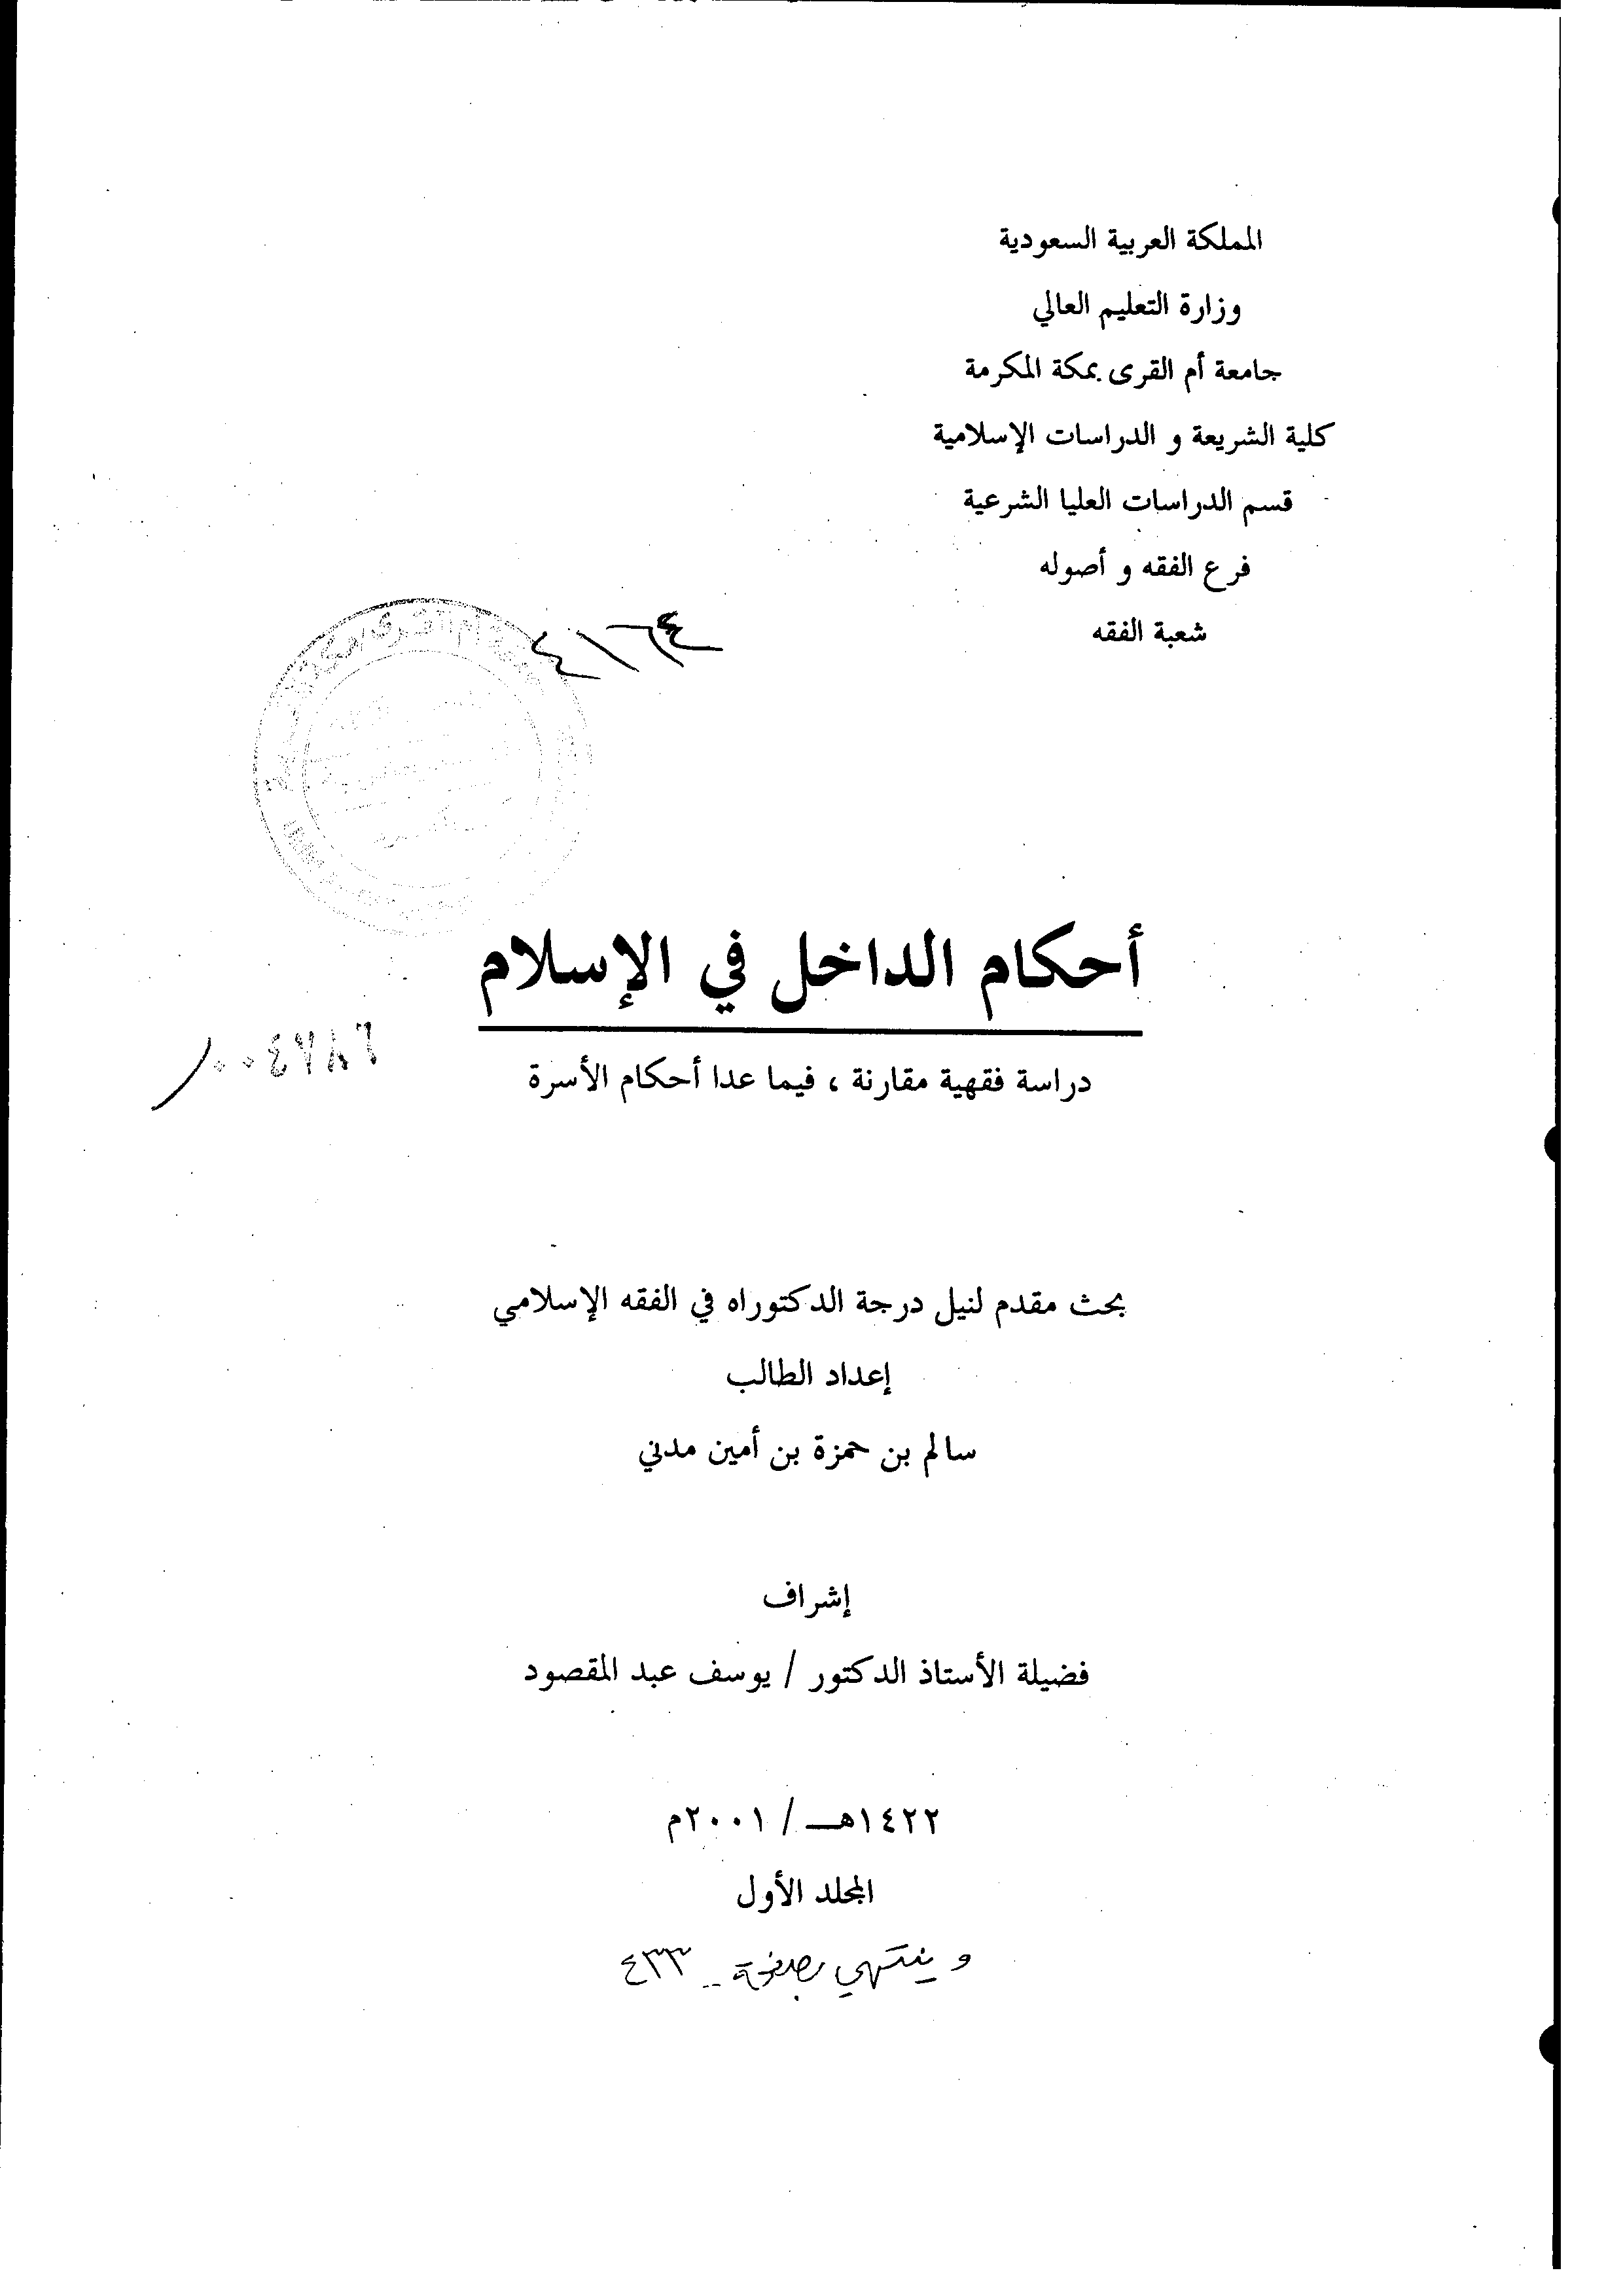 المملكة العربية السعودية
وزارة التعليم العالي
جامعة أم القرى بمكة المكرمة
كلية الشريعة و الدراسات الإسلامية
قسم الدراسات العليا الشرعية
فرع الفقه و أصوله
شعبة الفقه
أحكام الداخل في الإسلام
دراسة فقهية مقارنة ، فيما عدا أحكام الأسرة
بحث مقدم لنيل درجة الدكتوراه في الفقه الإسلامي
إعداد الطالب
سالم بن حمزة بن أمين مدني
إشراف
فضيلة الأستاذ الدكتور / يوسف عبد المقصود
١٤٢٢هـ / ٢٠٠١م
المجلد الأول
و ينتهي بصفحة ٤٣٣